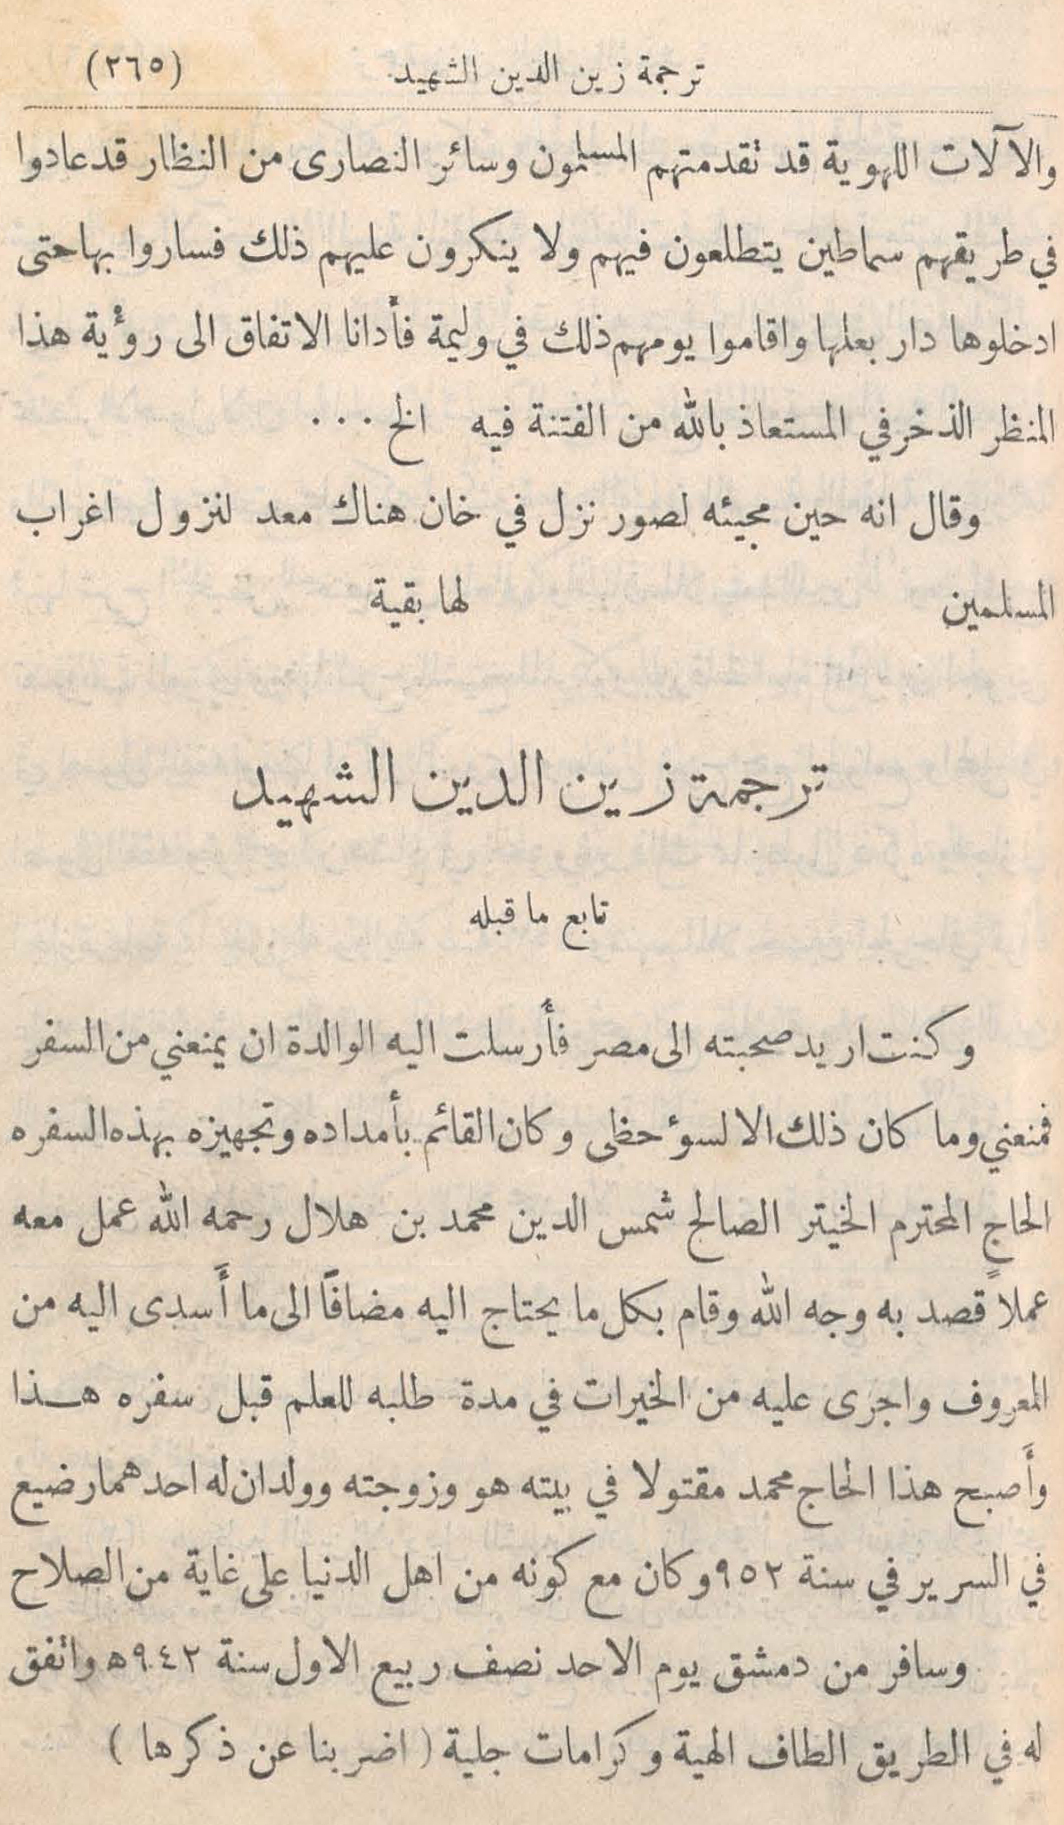 ترجمة زين الدين الشهيد (٢٦٥)
والآلات اللهوية قد تقدمتهم المسلمون وسائر النصارى من النظار قد عادوا
في طريقهم سماطين يتطلعون فيهم ولا ينكرون عليهم ذلك فساروا بها حتى
ادخلوها دار بعلها واقاموا يومهم ذلك في وليمة فأدانا الاتفاق الى رؤية هذا
المنظر الذخرفي المستعاذ بالله من الفتنة فيه الخ ...
وقال انه حين مجيئه لصور نزل في خان هناك معد لنزول اغراب
المسلمين لها بقية
ترجمة زين الدين الشهيد
تابع ما قبله
وكنت اريد صحبته الى مصر فأرسلت اليه الوالدة ان يمنعني من السفر
فمنعني وما كان ذلك الا لسوء حظي وكان القائم بأمداده وتجهيزه بهذه السفره
الحاج المحترم الخيتر الصالح شمس الدين محمد بن هلال رحمه الله عمل معه
عملاً قصد به وجه الله وقام بكل ما يحتاج اليه مضافًا الى ما أَسدى اليه من
المعروف واجرى عليه من الخيرات في مدة طلبه للعلم قبل سفره هـذا
وأَصبح هذا الحاج محمد مقتولا في بيته هو وزوجته وولدان له احدهما رضيع
في السرير في سنة ٩٥٢ وكان مع كونه من اهل الدنيا على غاية من الصلاح
وسافر من دمشق يوم الاحد نصف ربيع الاول سنة ٩٤٢ﻫ واتفق
له في الطريق الطاف الهية وكرامات جلية ( اضربنا عن ذكرها )